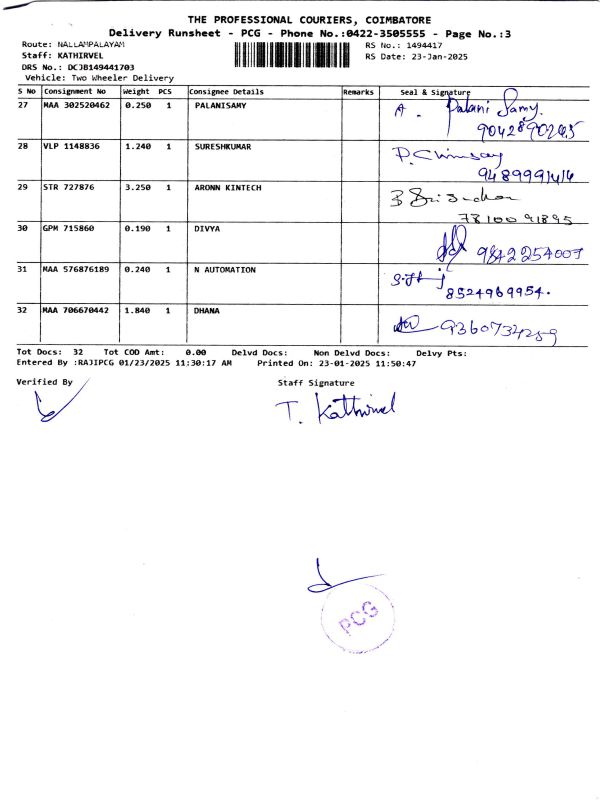 THE PROFESSIONAL COURIERS, COIMBATORE
Delivery Runsheet - PCG - Phone No.:0422-3505555 - Page No.:3
Route: NALLAMPALAYAM RS No.: 1494417
Staff: KATHIRVEL RS Date: 23-Jan-2025
DRS No.: DCJB149441703
Vehicle: Two Wheeler Delivery
S No Consignment No Weight PCS Consignee Details Remarks Seal & Signature
27 MAA 302520462 0.250 1 PALANISAMY A. Palani Samy.
9042890265
28 VLP 1148836 1.240 1 SURESHKUMAR
9489991414
29 STR 727876 3.250 1 ARONN KINTECH
7810091895
30 GPM 715860 0.190 1 DIVYA
9842254007
31 MAA 576876189 0.240 1 N AUTOMATION
8524969954.
32 MAA 706670442 1.840 1 DHANA
9360734259
Tot Docs: 32 Tot COD Amt: 0.00 Delvd Docs: Non Delvd Docs: Delvy Pts:
Entered By :RAJIPCG 01/23/2025 11:30:17 AM Printed On: 23-01-2025 11:50:47
Verified By Staff Signature
T. Kathirvel
PCG